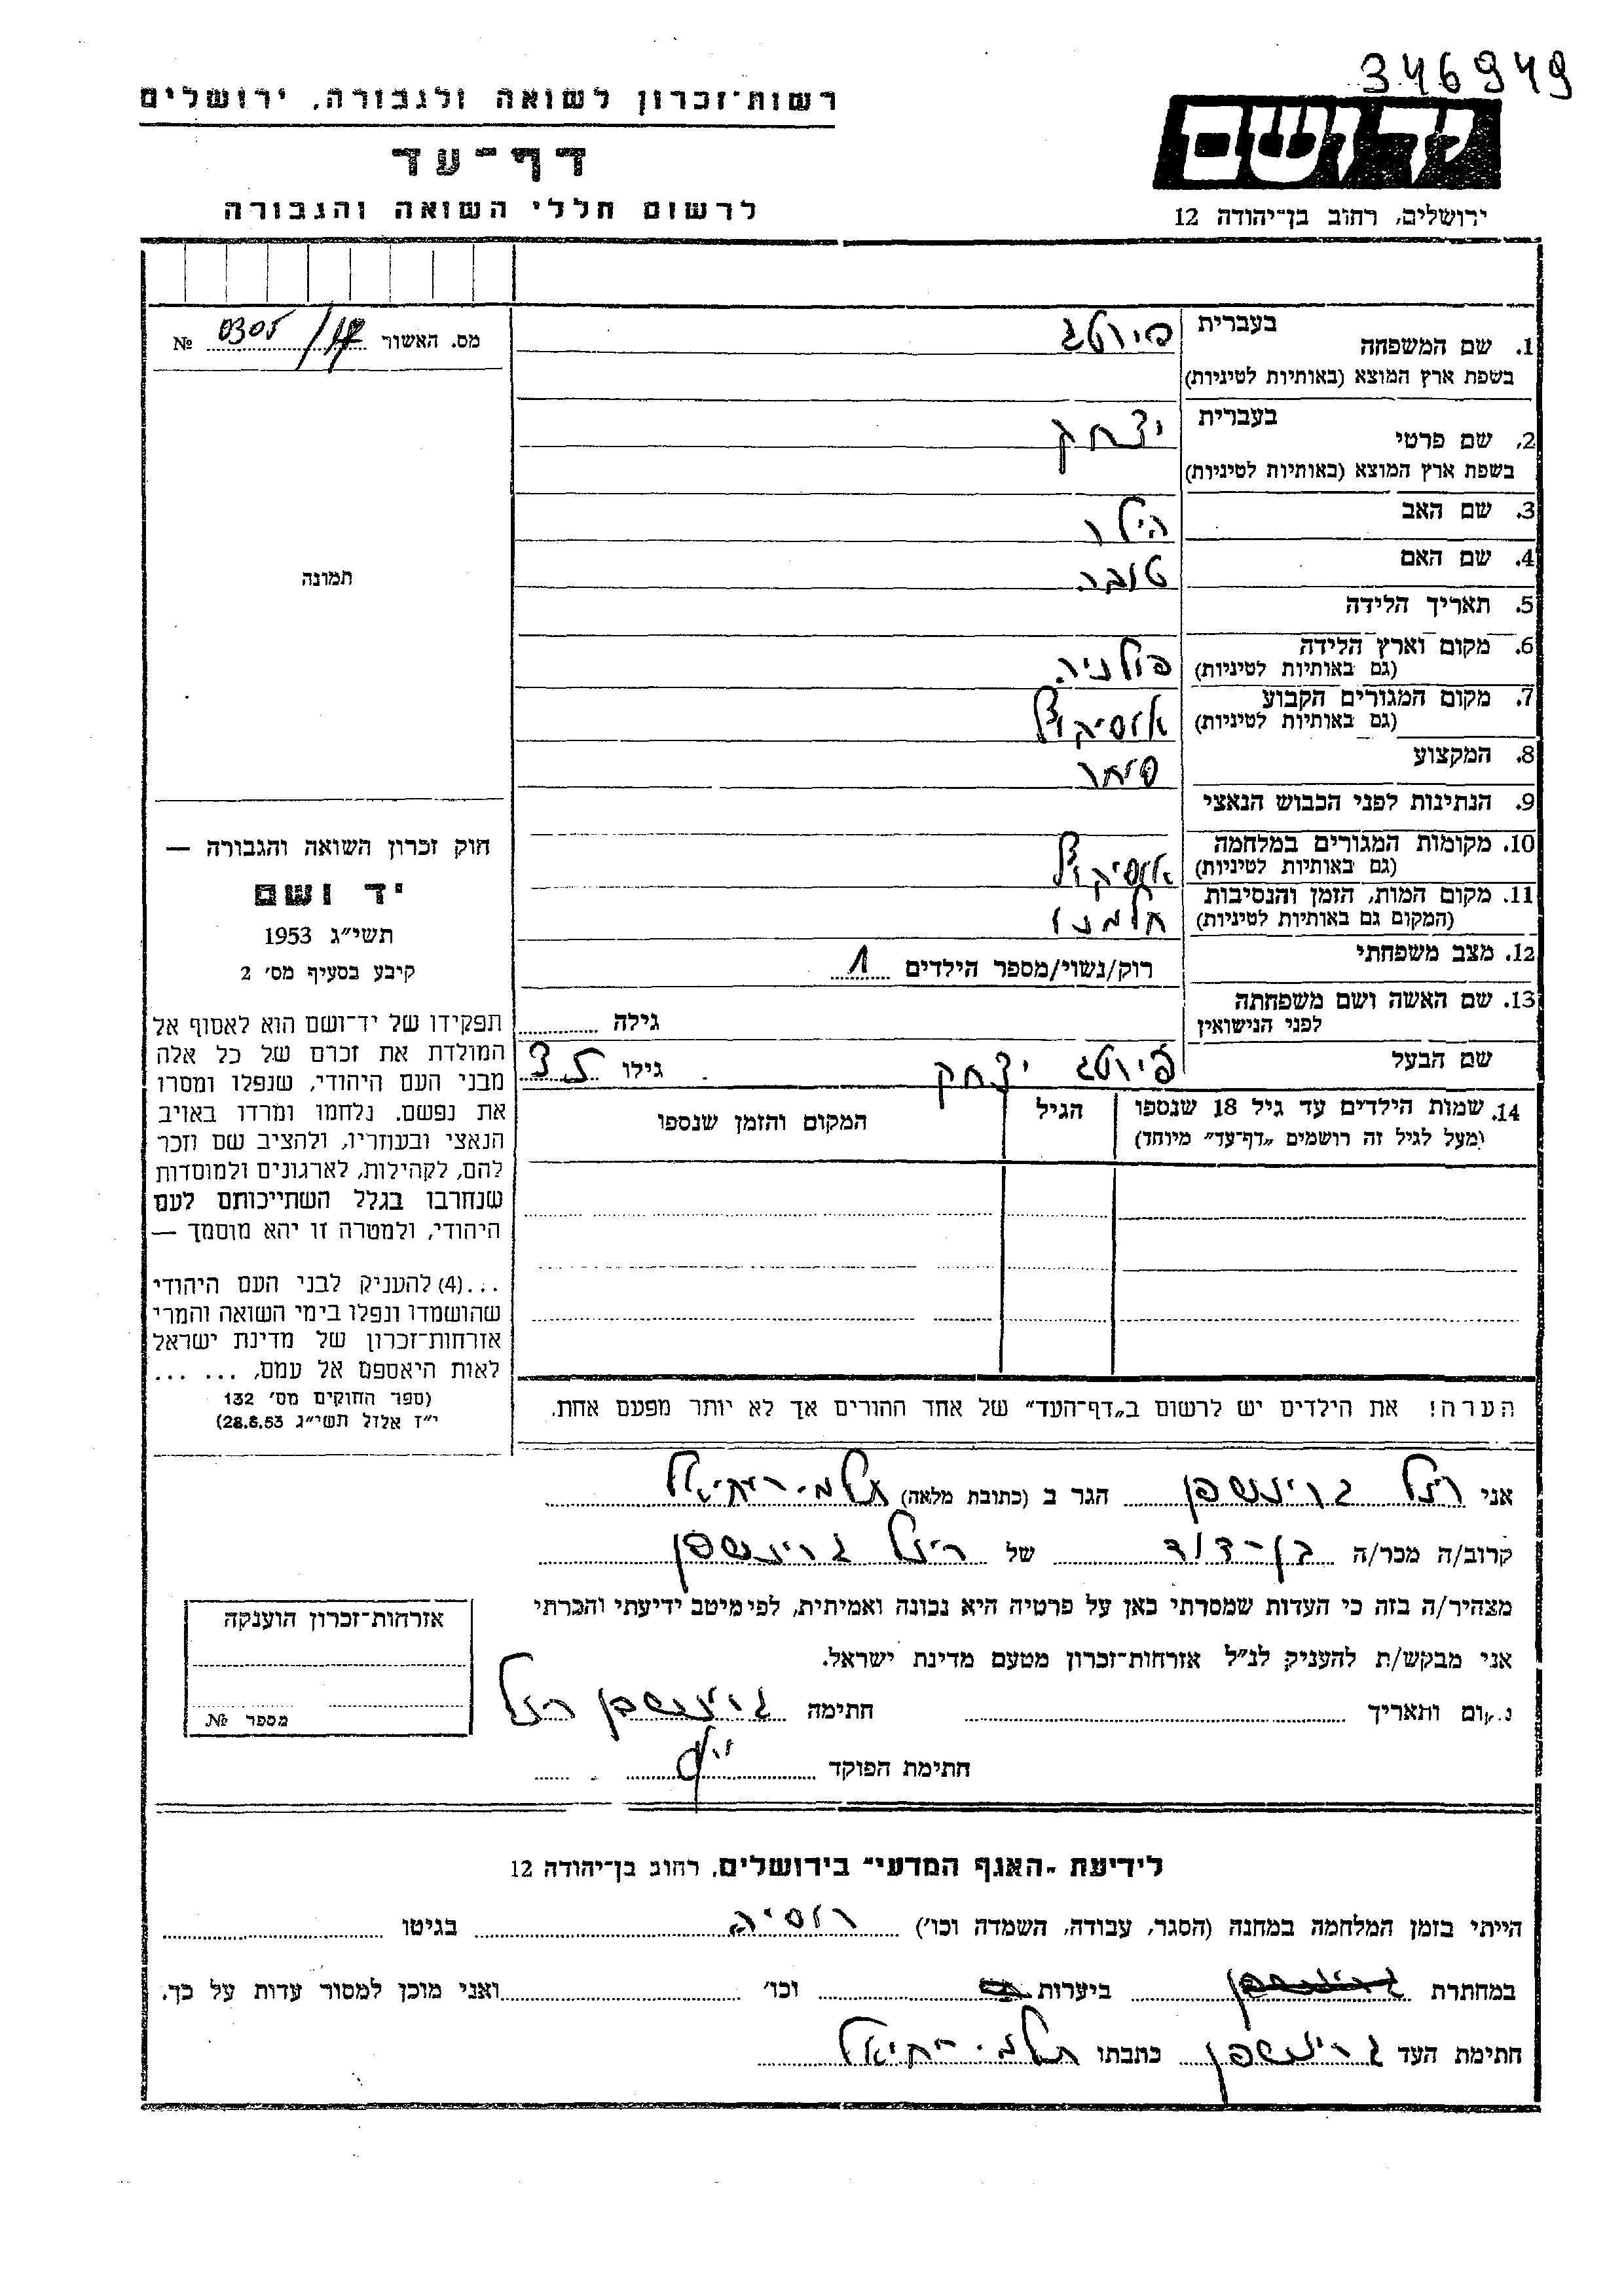 346949
רשות-זכרון לשואה ולגבורה, ירושלים
דף-עד
לרשום חללי השואה והגבורה
יד ושם
ירושלים, רחוב בן-יהודה 12
מס. האשור 0305/17 №
תמונה
חוק זכרון השואה והגבורה —
יד ושם
תשי״ג 1953
קיבע בסעיף מס׳ 2
תפקידו של יד-ושם הוא לאסוף אל
המולדת את זכרם של כל אלה
מבני העם היהודי, שנפלו ומסרו
את נפשם. נלחמו ומרדו באויב
הנאצי ובעוזריו, ולהציב שם וזכר
להם, לקהילות, לארגונים ולמוסדות
שנחרבו בגלל השתייכותם לעם
היהודי, ולמטרה זו יהא מוסמך —
...(4) להעניק לבני העם היהודי
שהושמדו ונפלו בימי השואה והמרי
אזרחות-זכרון של מדינת ישראל
לאות היאספם אל עמם, ... ...
(ספר החוקים מס׳ 132
י״ז אלול תשי״ג 28.8.53)
1. שם המשפחה בעברית פיוטג
בשפת ארץ המוצא (באותיות לטיניות)
2. שם פרטי בעברית יצחק
בשפת ארץ המוצא (באותיות לטיניות)
3. שם האב הילו
4. שם האם טובה
5. תאריך הלידה
6. מקום וארץ הלידה פולניה
(גם באותיות לטיניות)
7. מקום המגורים הקבוע
(גם באותיות לטיניות)
8. המקצוע סוחר
9. הנתינות לפני הכבוש הנאצי
10. מקומות המגורים במלחמה
(גם באותיות לטיניות)
11. מקום המות, הזמן והנסיבות חלמנו
(המקום גם באותיות לטיניות)
12. מצב משפחתי רוק/נשוי/מספר הילדים 1
13. שם האשה ושם משפחתה גילה
לפני הנישואין
שם הבעל פיוטג יצחק גילו 35
14. שמות הילדים עד גיל 18 שנספו הגיל המקום והזמן שנספו
(מעל לגיל זה רושמים „דף-עד״ מיוחד)
הערה! את הילדים יש לרשום ב„דף-העד״ של אחד ההורים אך לא יותר מפעם אחת.
אני רחל גרינשפן הגר ב (כתובת מלאה) תלמי-יחיאל
קרוב/ה מכר/ה בן-דוד של רחל גרינשפן
מצהיר/ה בזה כי העדות שמסרתי כאן על פרטיה היא נכונה ואמיתית, לפי מיטב ידיעתי והכרתי
אני מבקש/ת להעניק לנ״ל אזרחות-זכרון מטעם מדינת ישראל.
מקום ותאריך חתימה גרינשפן רחל
חתימת הפוקד
אזרחות-זכרון הוענקה
מספר №
לידיעת „האגף המדעי״ בירושלים, רחוב בן-יהודה 12
הייתי בזמן המלחמה במחנה (הסגר, עבודה, השמדה וכו׳) רוסיה בגיטו
במחתרת ביערות וכו׳ ואני מוכן למסור עדות על כך.
חתימת העד גרינשפן כתבתו תלמי-יחיאל